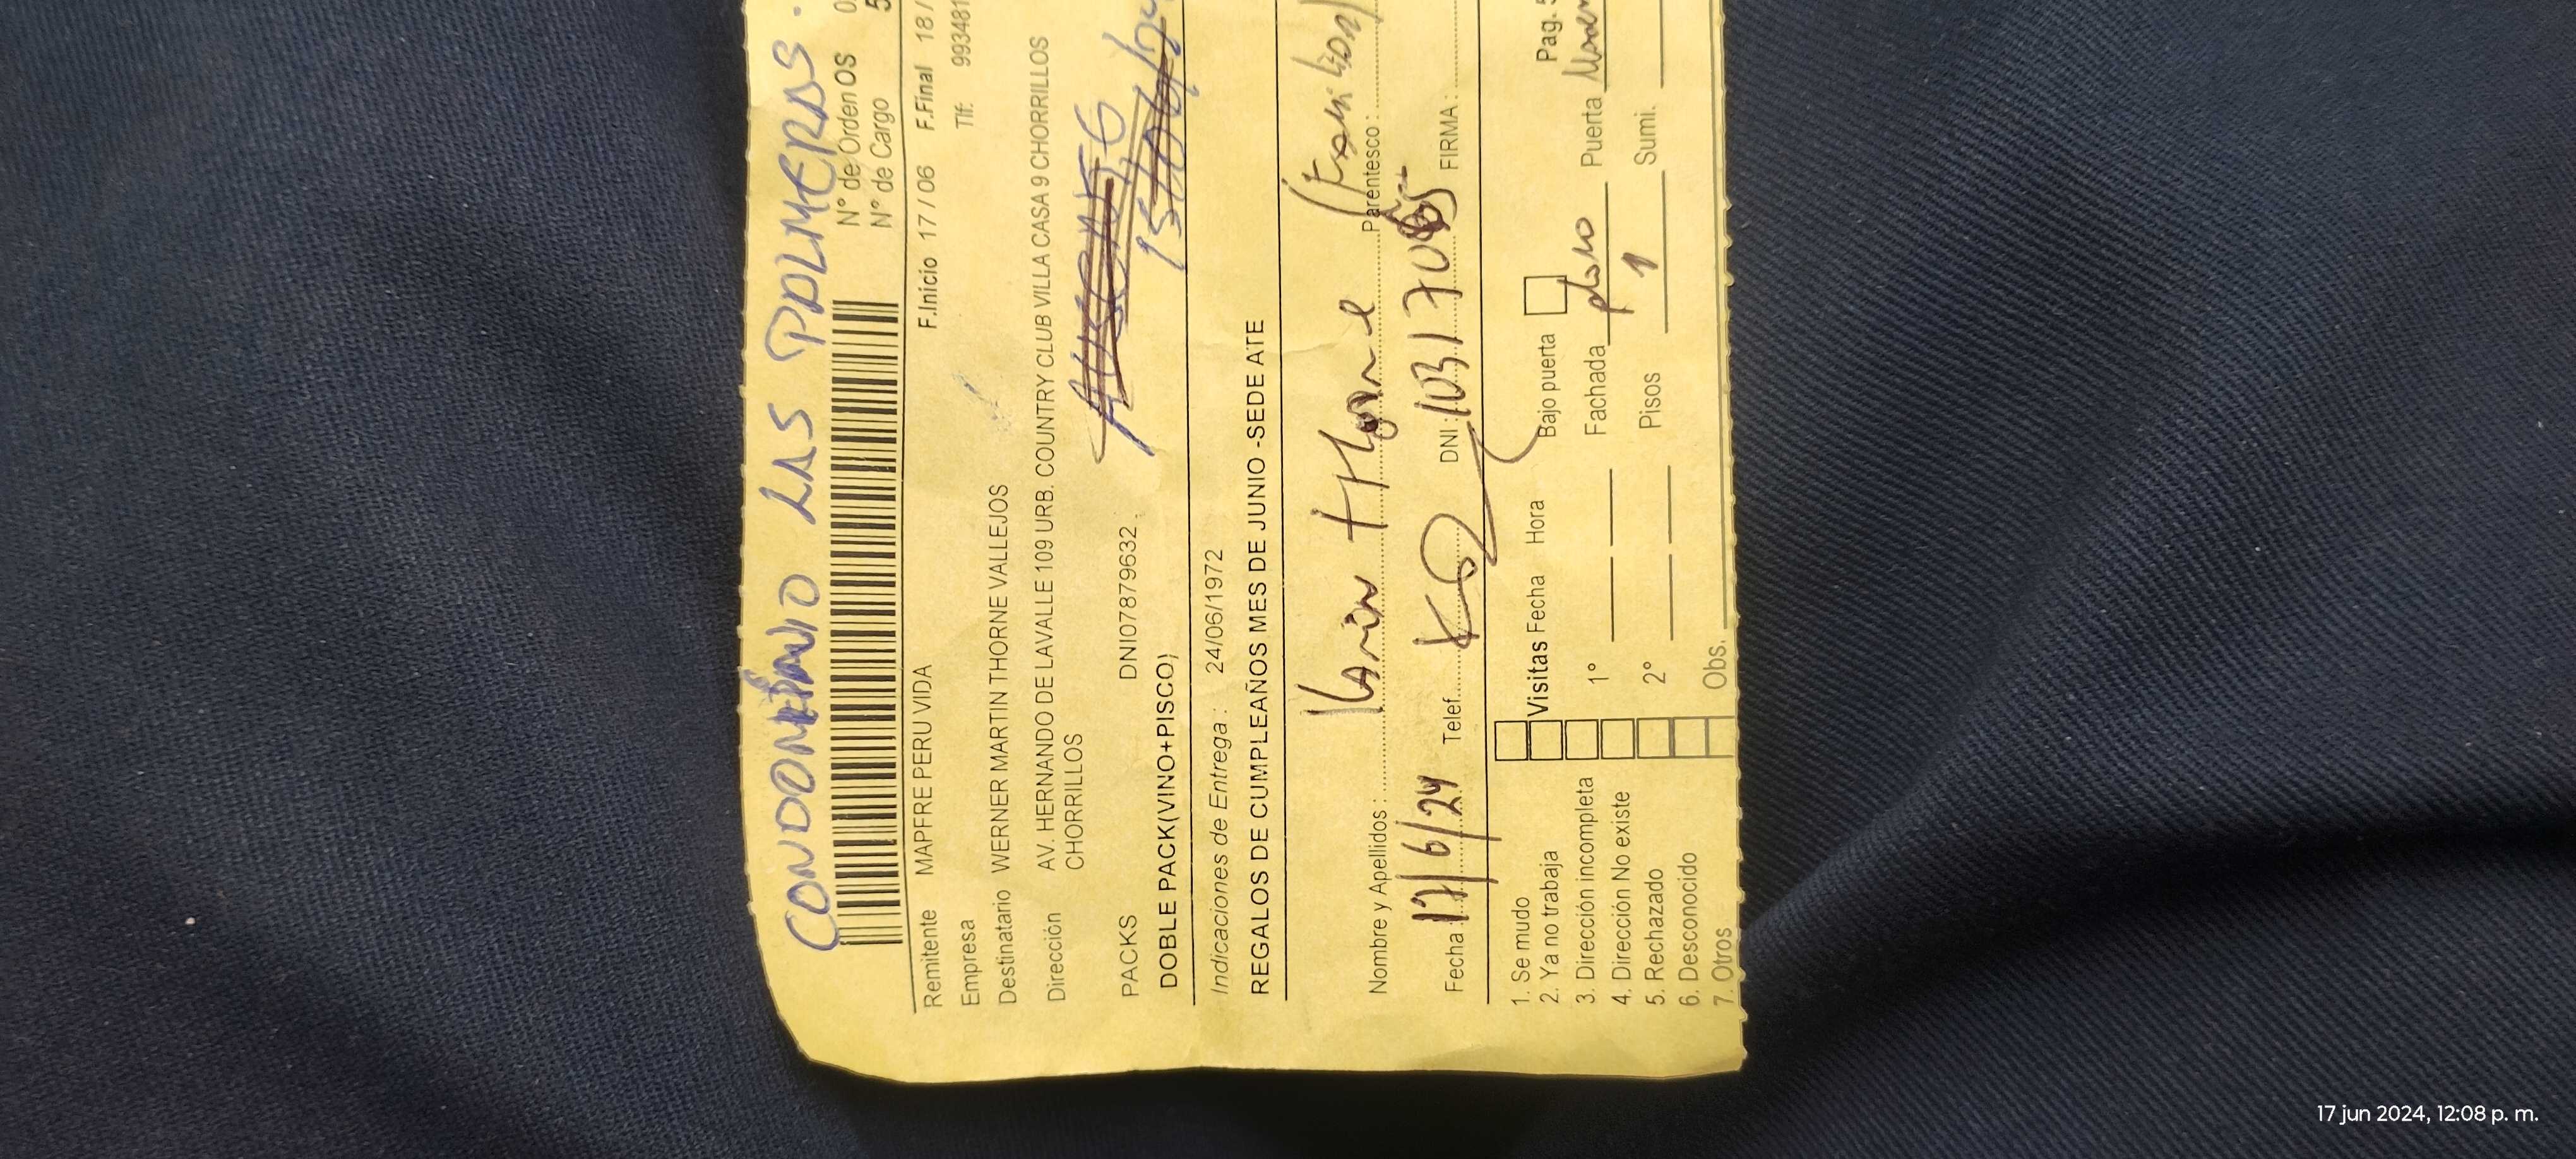 CONDOMINIO LAS PALMERAS.
N° de Orden OS 0
N° de Cargo 5
F.Inicio 17 / 06 F.Final 18 /
Remitente MAPFRE PERU VIDA
Empresa Tlf: 993481
Destinatario WERNER MARTIN THORNE VALLEJOS
Dirección AV. HERNANDO DE LAVALLE 109 URB. COUNTRY CLUB VILLA CASA 9 CHORRILLOS
CHORRILLOS
PACKS DNI07879632
DOBLE PACK(VINO+PISCO)
Indicaciones de Entrega : 24/06/1972
REGALOS DE CUMPLEAÑOS MES DE JUNIO -SEDE ATE
Nombre y Apellidos : Karin Thorne Parentesco :
Fecha : 17/6/24 Telef. DNI : FIRMA :
1. Se mudo
2. Ya no trabaja Visitas Fecha Hora Bajo puerta Pag. 5
3. Dirección incompleta 1° Fachada Puerta
4. Dirección No existe
5. Rechazado 2° Pisos 1 Sumi.
6. Desconocido
7. Otros Obs.
17 jun 2024, 12:08 p. m.